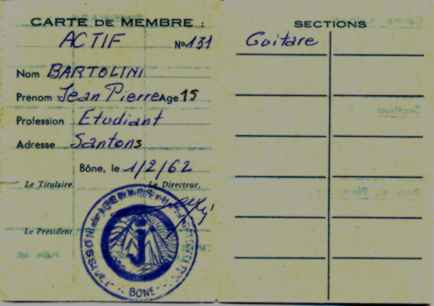 CARTE DE MEMBRE :
ACTIF Nº 131
Nom BARTOLINI
Prenom Jean Pierre Age 15
Profession Etudiant
Adresse Santons
Bône, le 1/2/62
Le Titulaire. Le Directeur,
Le President
BONE
SECTIONS
Guitare